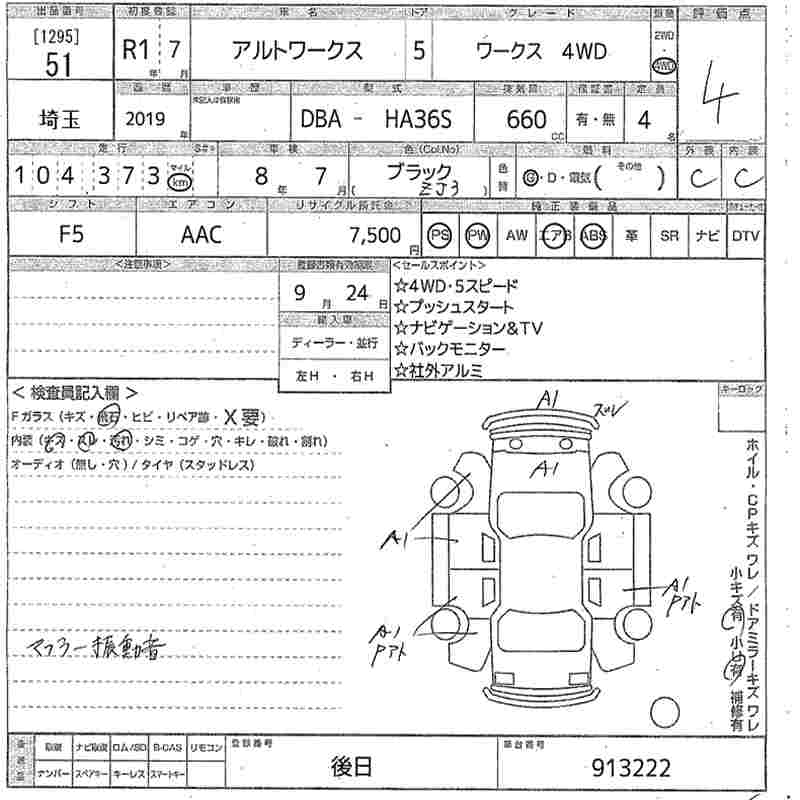 出品番号 初度登録 車名 ドア グレード 駆動 評価点
[1295] 51 R1年 7月 アルトワークス 5 ワークス 4WD 2WD 4WD 4
埼玉 2019年 車歴 型式 DBA - HA36S 排気量 660CC 保証書 有・無 定員 4名
走行 S#※ 車検 色(Col.No) 色替 燃料 外装 内装
104,373 マイル km 8年 7月 ブラック ( ZJ3 ) G・D・電気( その他 ) C C
シフト エアコン リサイクル預託金 純正装備品
F5 AAC 7,500円 PS PW AW エアB ABS 革 SR ナビ DTV
<注意事項> 登録書類有効期限 <セールスポイント>
9月 24日 ☆4WD・5スピード
☆プッシュスタート
輸入車 ☆ナビゲーション&TV
ディーラー・並行 ☆バックモニター
左H ・ 右H ☆社外アルミ
< 検査員記入欄 > キーロック
Fガラス (キズ・飛石・ヒビ・リペア跡・X要)
内装 (キズ・スレ・汚れ・シミ・コゲ・穴・キレ・破れ・割れ)
オーディオ (無し・穴) / タイヤ (スタッドレス)
A1 ズレ
A1
A1
A1 Pアト
A1 Pアト
マフラー振動音
ホイル・CPキズワレ/ドアミラーキズワレ
小キズ有 小凹有 補修有
取説 ナビ取説 ロム/SD B-CAS リモコン 登録番号 車台番号
ナンバー スペアキー キーレス スマートキー 後日 913222